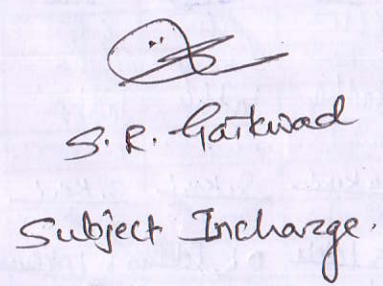 S. R. Gaikwad
Subject Incharge.